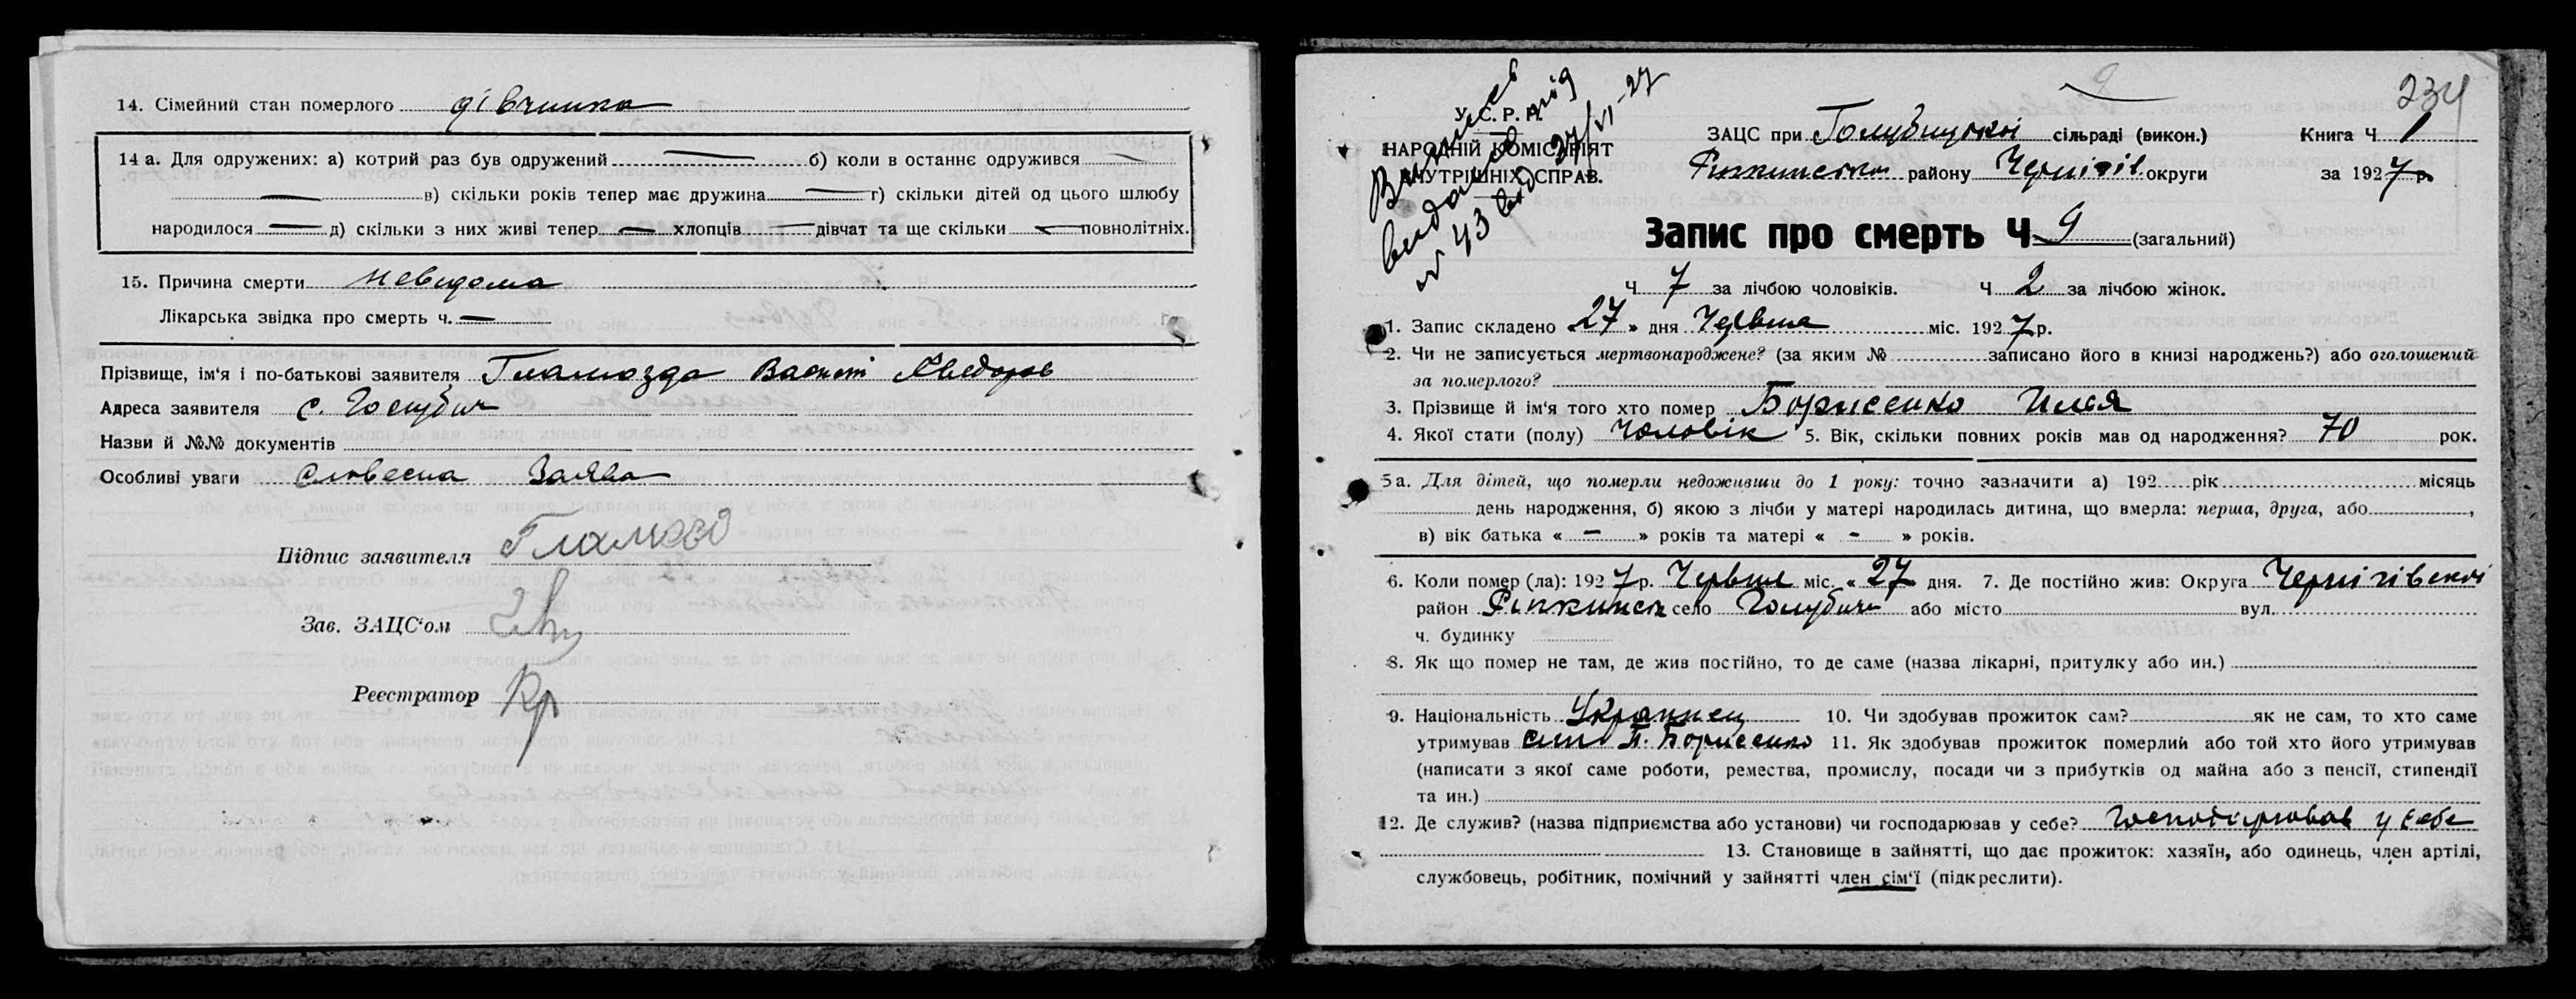 14. Сімейний стан померлого дівчинка
14 а. Для одружених: а) котрий раз був одружений — б) коли в останнє одружився —
— в) скільки років тепер має дружина — г) скільки дітей од цього шлюбу
народилося — д) скільки з них живі тепер — хлопців — дівчат та ще скільки — повнолітніх.
15. Причина смерти невидома
Лікарська звідка про смерть ч. —
Прізвище, ім'я і по-батькові заявителя Гламозда
Адреса заявителя с. Голубич
Назви й №№ документів
Особливі уваги Словесна Заява
Підпис заявителя Гламозд
Зав. ЗАЦС'ом
Реєстратор
9
234
Виписев
видано під
№ 43 від 27/VI-27
У. С. Р. Р.
НАРОДНІЙ КОМІСАРІЯТ
ВНУТРІШНІХ СПРАВ.
ЗАЦС при Голубицькой сільраді (викон.)
Книга Ч 1
району Чернігів округи
за 1927 р.
Запис про смерть Ч 9 (загальний)
Ч 7 за лічбою чоловіків. Ч 2 за лічбою жінок.
1. Запис складено «27» дня Червня міс. 1927 р.
2. Чи не записується мертвонароджене? (за яким № записано його в книзі народжень?) або оголошений
за померлого?
3. Прізвище й ім'я того хто помер Борисенко Илля
4. Якої стати (полу) Чоловік 5. Вік, скільки повних років мав од народження? 70 рок.
5а. Для дітей, що померли недоживши до 1 року: точно зазначити а) 192 рік місяць
день народження, б) якою з лічби у матері народилась дитина, що вмерла: перша, друга, або ,
в) вік батька « - » років та матері « - » років.
6. Коли помер (ла): 1927 р. Червня міс. «27 дня. 7. Де постійно жив: Округа Чернігівской
район Ріпкинск село Голубичи або місто вул.
ч. будинку
8. Як що помер не там, де жив постійно, то де саме (назва лікарні, притулку або ин.)
9. Національність Украинец 10. Чи здобував прожиток сам? як не сам, то хто саме
утримував син П. Борисенко 11. Як здобував прожиток померлий або той хто його утримував
(написати з якої саме роботи, ремества, промислу, посади чи з прибутків од майна або з пенсії, стипендії
та ин.)
12. Де служив? (назва підприємства або установи) чи господарював у себе? Господарював у себе
13. Становище в зайнятті, що дає прожиток: хазяїн, або одинець, член артілі,
службовець, робітник, помічний у зайнятті член сім'ї (підкреслити).